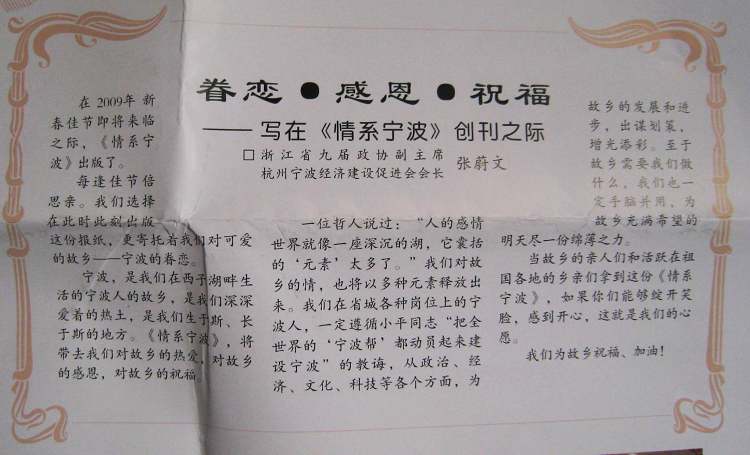 眷恋●感恩●祝福
——写在《情系宁波》创刊之际
□浙江省九届政协副主席
杭州宁波经济建设促进会会长
张蔚文
在2009年新
春佳节即将来临
之际，《情系宁
波》出版了。
每逢佳节倍
思亲。我们选择
在此时此刻出版
这份报纸，更寄托着我们对可爱
的故乡——宁波的眷恋。
宁波，是我们在西子湖畔生
活的宁波人的故乡，是我们深深
爱着的热土，是我们生于斯、长
于斯的地方。《情系宁波》，将
带去我们对故乡的热爱，对故乡
的感恩，对故乡的祝福。
一位哲人说过：“人的感情
世界就像一座深沉的湖，它囊括
的‘元素’太多了。”我们对故
乡的情，也将以多种元素释放出
来。我们在省城各种岗位上的宁
波人，一定遵循小平同志“把全
世界的‘宁波帮’都动员起来建
设宁波”的教诲，从政治、经
济、文化、科技等各个方面，为
故乡的发展和进
步，出谋划策，
增光添彩。至于
故乡需要我们做
什么，我们也一
定手脑并用，为
故乡充满希望的
明天尽一份绵薄之力。
当故乡的亲人们和活跃在祖
国各地的乡亲们拿到这份《情系
宁波》，如果你们能够绽开笑
脸，感到开心，这就是我们的心
愿。
我们为故乡祝福、加油！